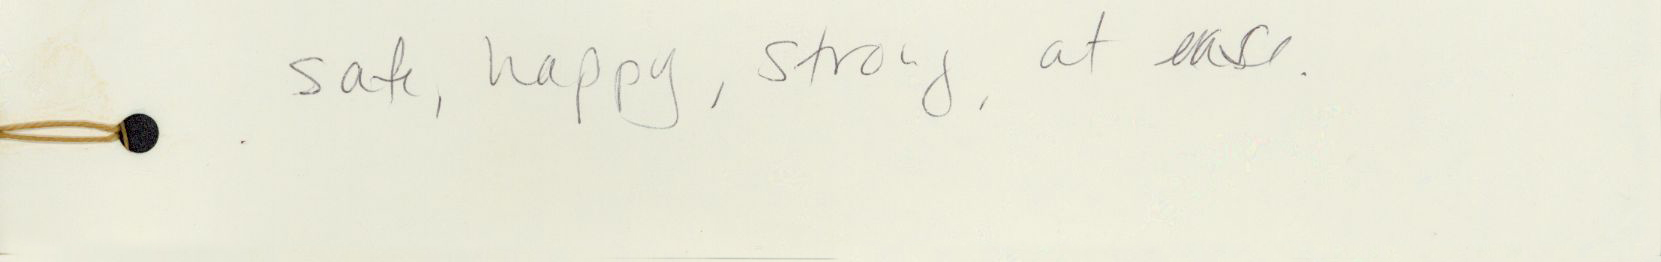 safe, happy, strong, at ease.